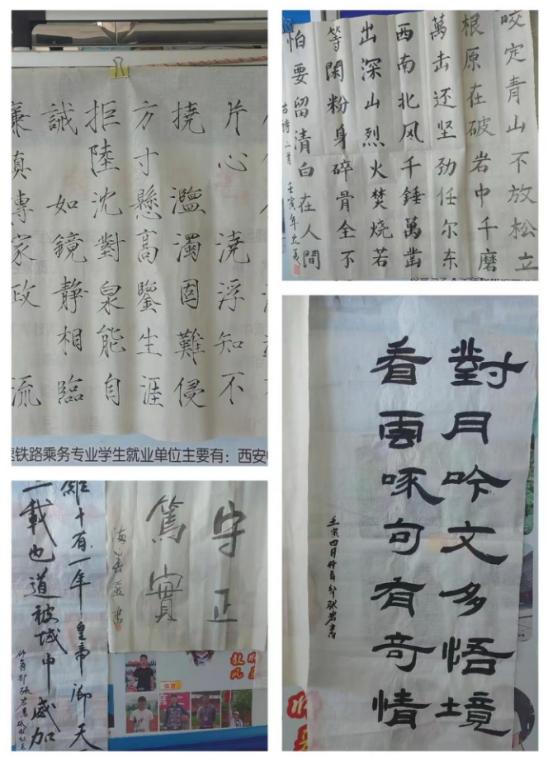 片心 澆浮知不
撓 濫濁固難侵
方寸懸高鑒生涯
拒陸沈對泉能自
誡 如鏡靜相臨
家政 流
铁路乘务专业学生就业单位主要有：西安
咬定青山不放松立
根原在破岩中千磨
萬击还坚劲任尔东
西南北风千錘萬凿
出深山烈火焚烧若
等閑粉身碎骨全不
怕要留清白在人間
古诗二首 壬寅年
守正
篤實
十有一年皇帝御天
載也道被域中威加
體育
對月吟文多悟境
看雲啄句有奇情
壬寅四月